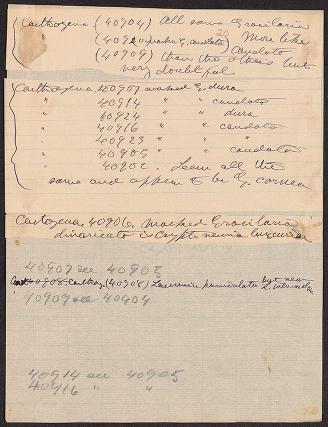 Carthagena (40904) All same Gracilaria
(40920 marked G. caudata) More like
(40909) caudata
than the others but
very doubtful
Carthagena 40907 marked G. dura
" 40914 " " caudata
" 40924 " " dura
" 40916 " " caudata
" 40923 " "
" 40905 " " caudata
" 40902. Seem all the
same and appear to be G. cornea
Cartagena 40906. Marked Gracilaria
divaricata is Cryptonemia luxurians
40907 see 40905
40908 (40908) Laurencia but near
40907 see 40904
40914 see 40905
40916 " "